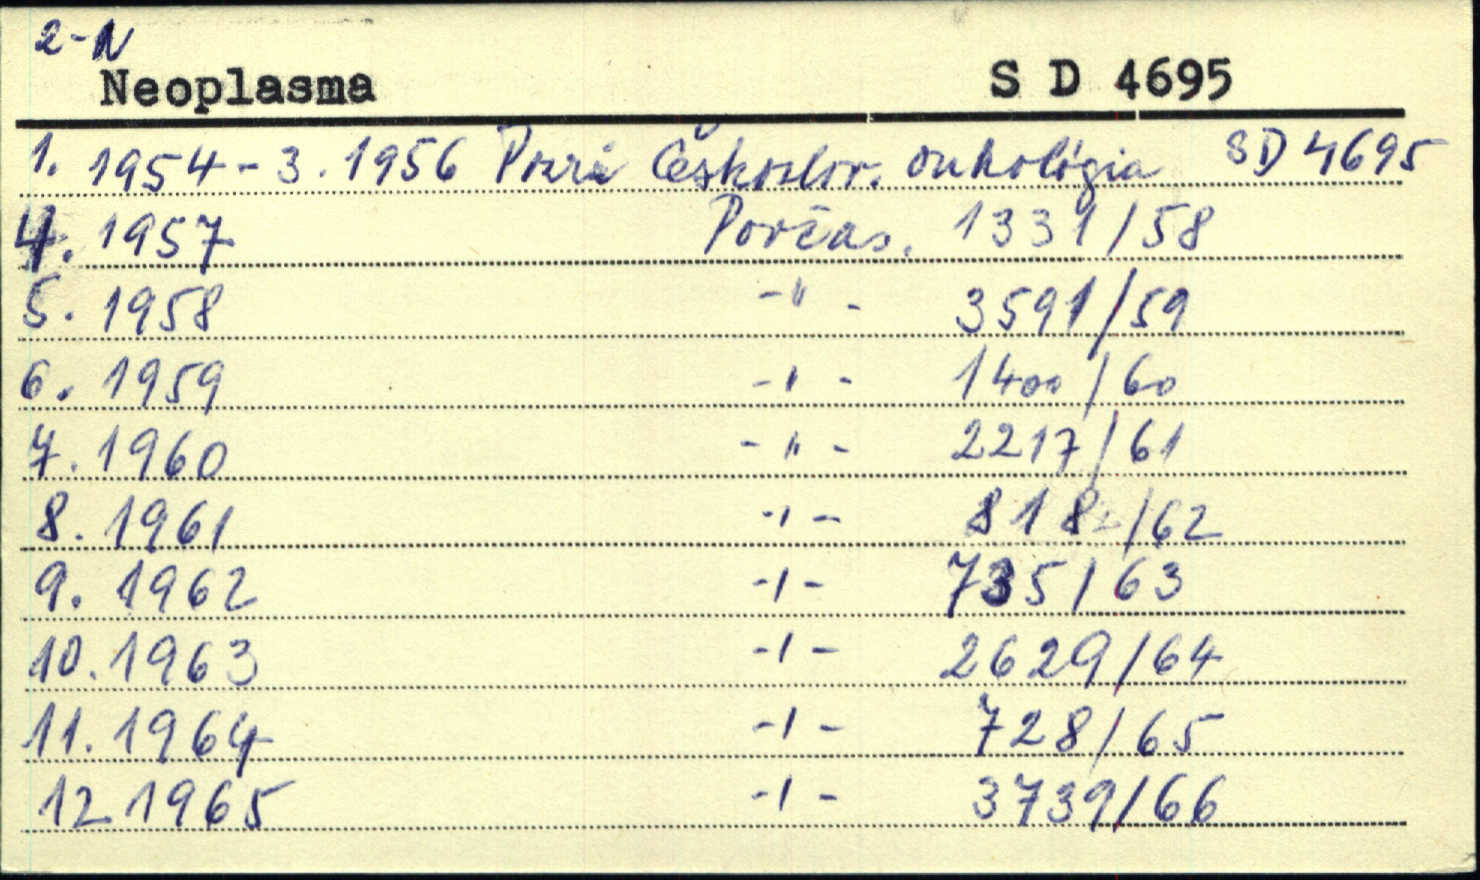 2-N
Neoplasma S D 4695
1. 1954-3. 1956 Pozri Českoslov. onkológia SD 4695
4. 1957 Porčas. 1331/58
5. 1958 -"- 3591/59
6. 1959 -"- 1400/60
7. 1960 -"- 2217/61
8. 1961 -"- 818/62
9. 1962 -"- 735/63
10. 1963 -"- 2629/64
11. 1964 -"- 728/65
12 1965 -"- 3739/66